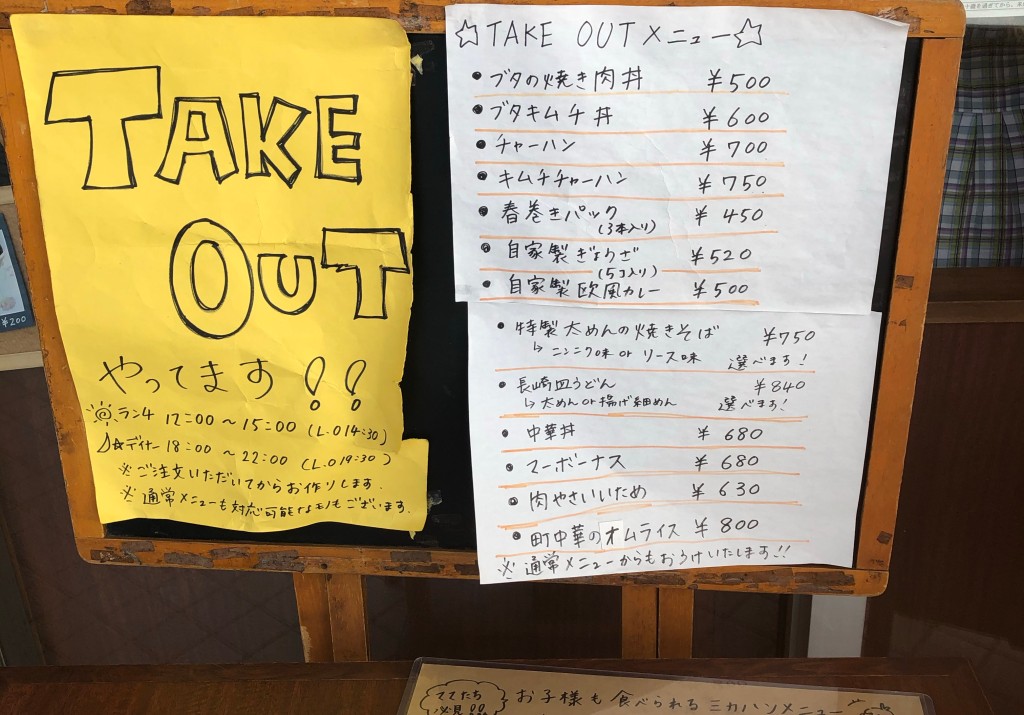 TAKE
OUT
やってます!!
ランチ 12:00 ～ 15:00 (L.O 14:30)
☆ディナー 18:00 ～ 22:00 (L.O 19:30)
※ご注文いただいてからお作りします.
※通常メニューも対応可能なモノもございます.
☆TAKE OUTメニュー☆
• ブタの焼き肉丼 ¥500
• ブタキムチ丼 ¥600
• チャーハン ¥700
• キムチチャーハン ¥750
• 春巻きパック ¥450
(3本入り)
• 自家製ぎょうざ ¥520
(5コ入り)
• 自家製欧風カレー ¥500
• 特製太めんの焼きそば ¥750
↳ ニンニク味 or ソース味 選べます!
• 長崎皿うどん ¥840
↳ 太めん or 揚げ細めん 選べます!
• 中華丼 ¥680
• マーボーナス ¥680
• 肉やさいいため ¥630
• 町中華のオムライス ¥800
※通常メニューからもおうけいたします!!
¥200
必見!!
お子様も食べられるミカハンメニュー